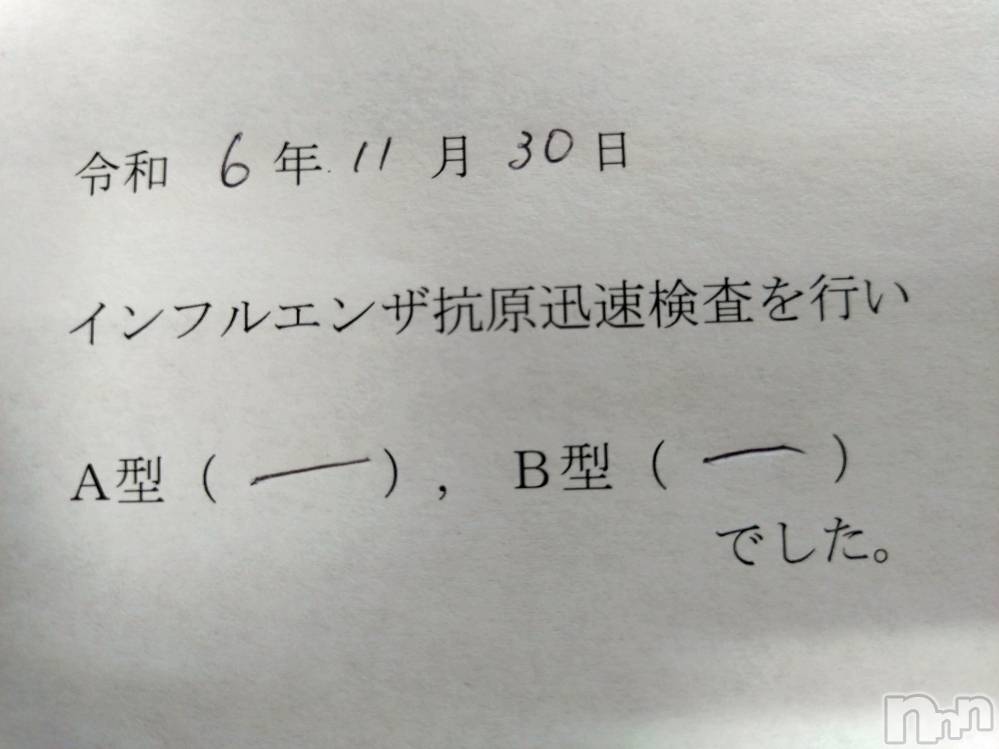 令和 6 年 11 月 30 日
インフルエンザ抗原迅速検査を行い
A型（ ー ），B型（ ー ）
でした。
nnn